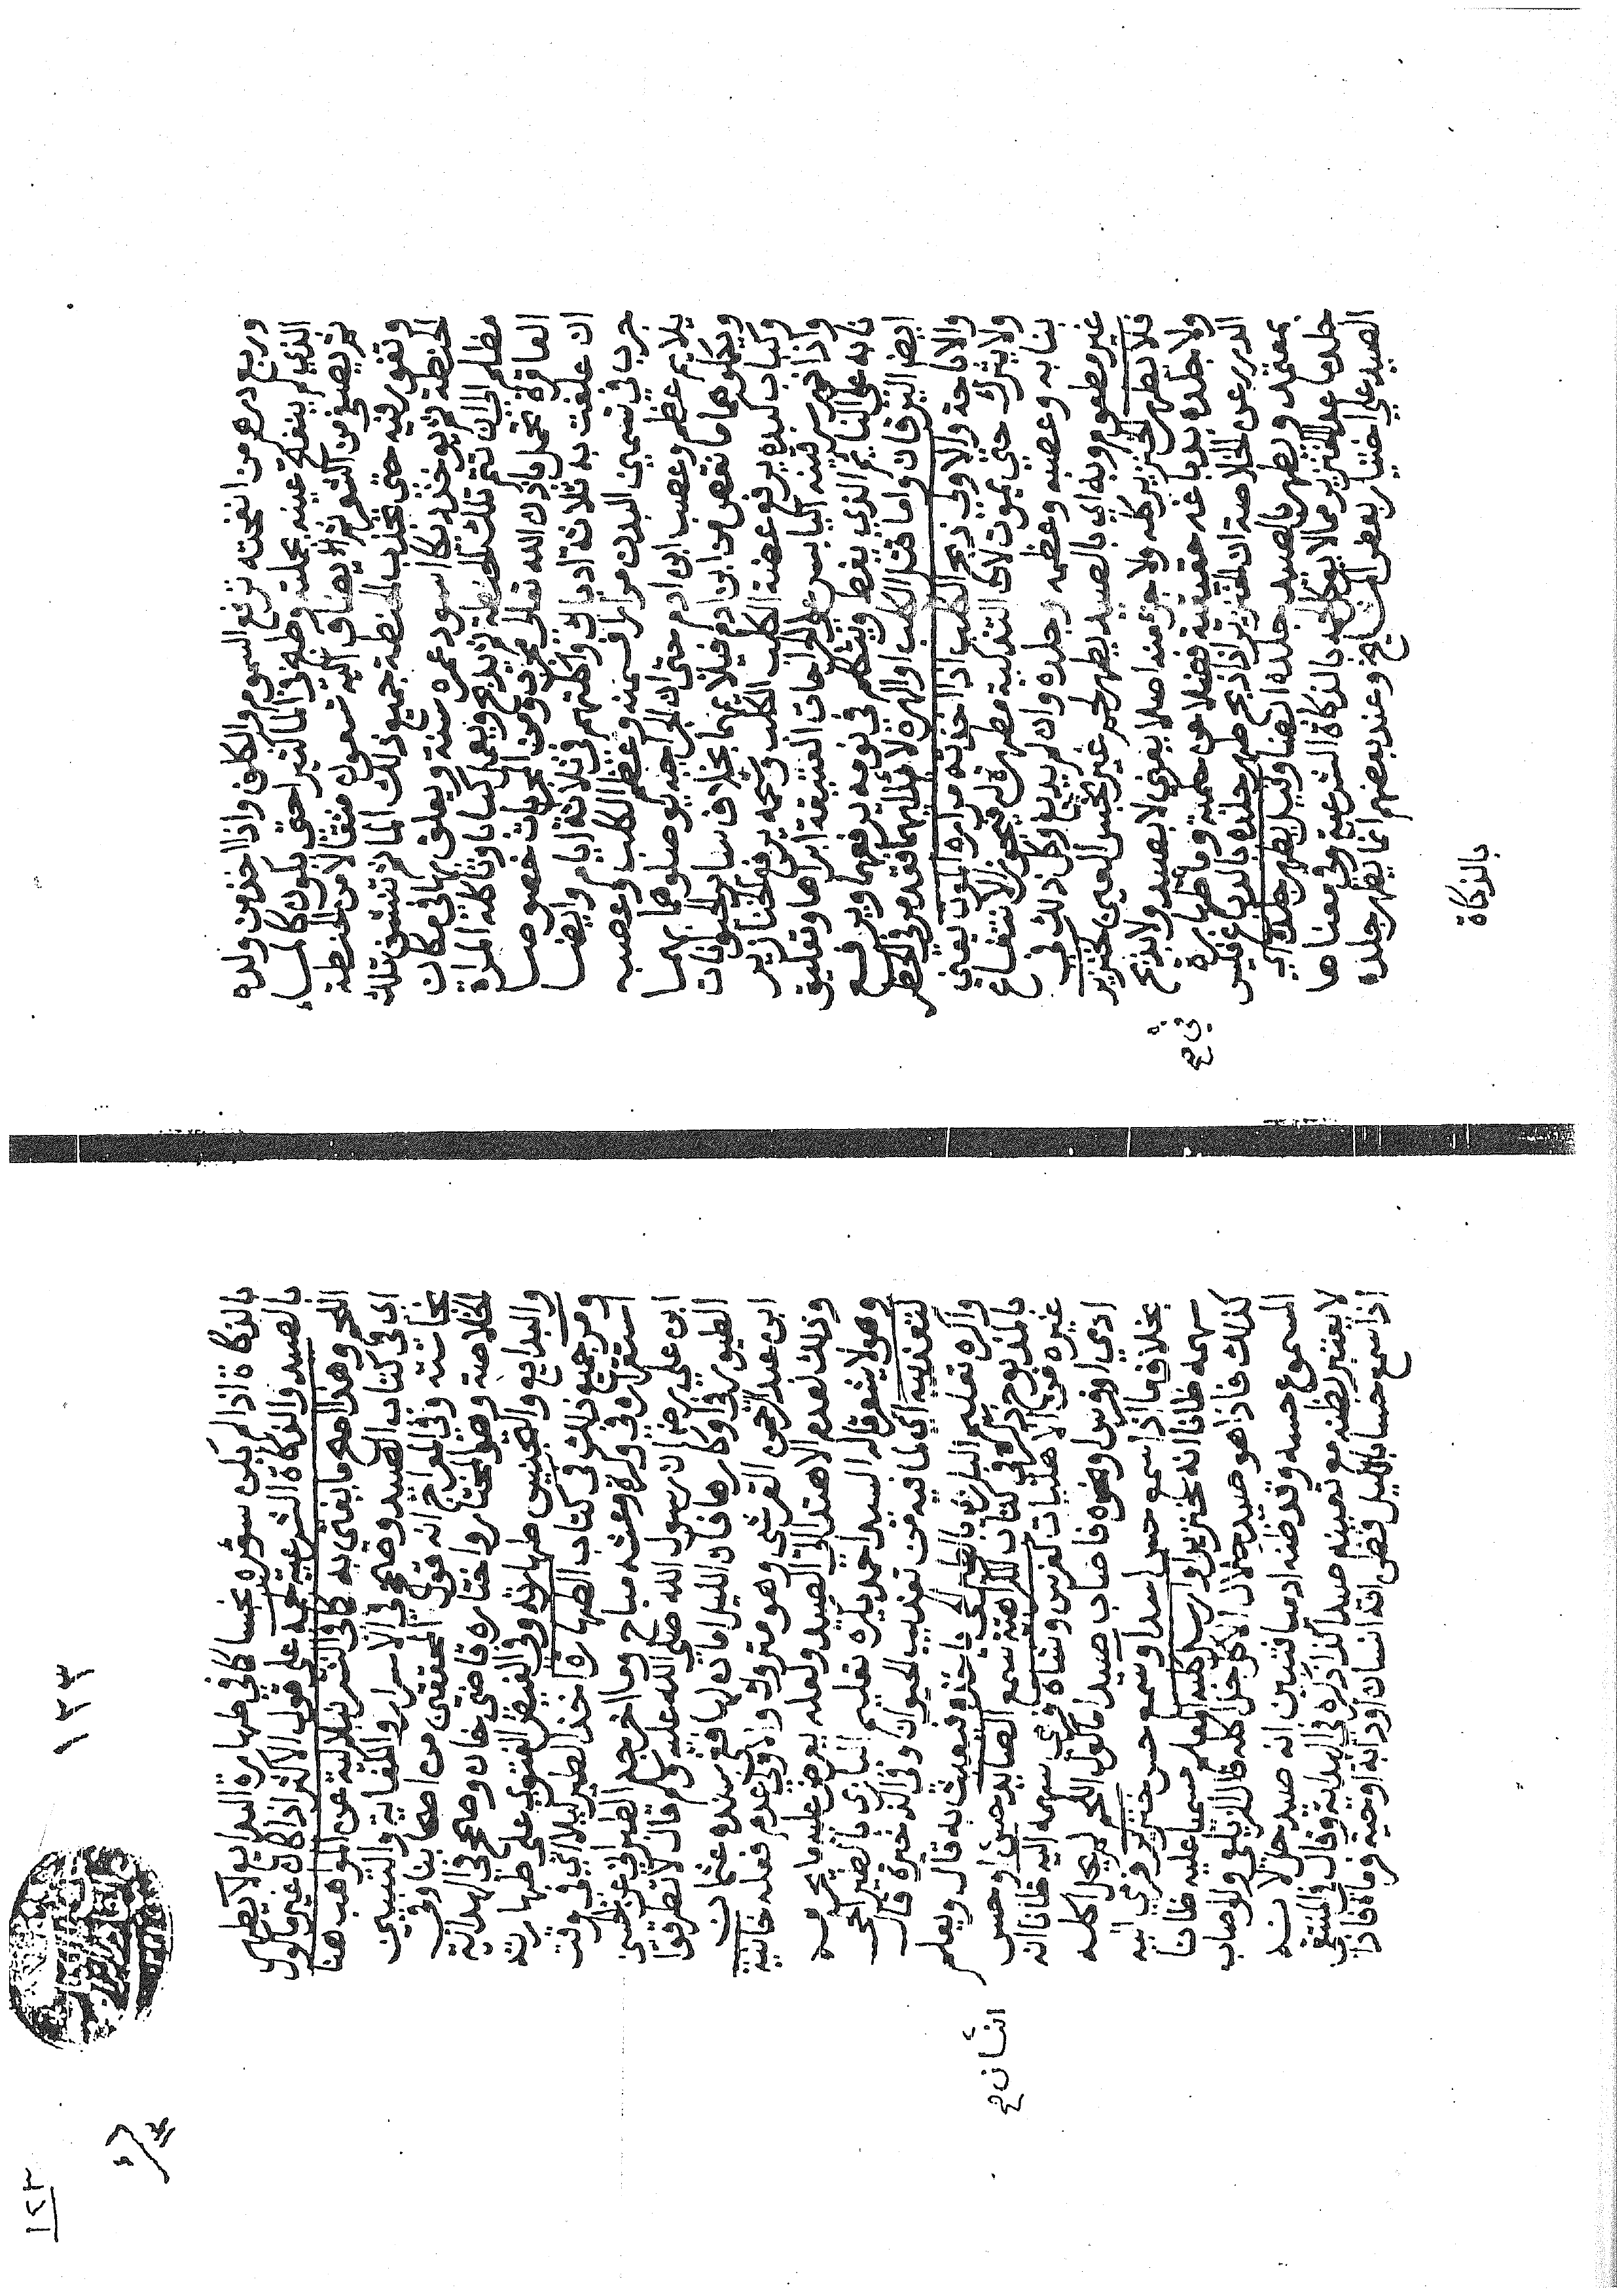 وربع درهم من انفحته ترفع السموم والكلف واذا اخذ من ولده
الذي لم ينفتح عينه بجملته وطبخ في الماء كثيرا حتى يكون كالمساء
ثم يصفى من الشعر ثم يضاف اليه تسعون مثقالا من الحنطة
وتغور فيه حتى تجذب الحنطة جميع ذلك الماء ثم تنشق تلك
الحنطة ثم يوخذ ديكا اسود عمره سنة ويعلق بها في مكان
مظلم الى ان تتم تلك الحنطة ثم يذبح ويعمل كبابا وتاكله المراة
العاقرة تحمل باذن الله تعالى مجرب ومن المجربات خصوصا
ان علفت به ثلاثة ادياك واكلتهم في ثلاثة ايام وايضا
جرب في تسمين البدن مرارا فسمنه وعظم الكلب وعصبه
يلايم عظم وعصب ابن ادم حتى ان الجراحيه يوصلوهما بهما
ويكملوهما ما نقص من ابن ادم فيلايمهما بخلاف ساير الحيوانات
وكباب كبده يرفع عضة الكلب الكلب وشحمه يرفع الخنازير
واذا نثر سرقينه اليابس على الجراحات العتيقة ابراها وتعليق
نابه على النايم الذي يغط ويتكلم في نومه يرفعهما ويرفع
ايضا اليرقان واما قتل الكلب او الهرة لاذيتهما فقدم في الحظر
والاباحة والاولى ذبح الكلب اذا اخذته مرارة الموت يعني
ولا يترك حتى يموت لان التذكية مطهرة له فيجوز الانتفاع
بنابه وعصبه وعظمه وجلده وان لم يدبغ وكل ذلك في
غير مطعوم وبه اي بالصيد يطهر لحم غير نجس العين خنزير
فلا يطهر الخنزير كله ولا جزء منه اصلا يعني لا بصيد ولا بذبح
ولا جلده بدباغه حقيقية فضلا عن حكمية وما ظهاره
الدرر عن الخلاصة ان الخنزير اذا ذبح طهر جلده بالدباغ فليس
بمعتمد ويطهر بالصيد جلده ايضا وقيل يطهر جلده اي
جلد ما عدا الخنزير مما لا يوكل لحمه بالذكاة الشرعية وفي معناها
الصيد على اختيار بعض المشايخ وعند بعضهم انما يطهر جلده
بالذكاة
بالذكاة اذا لم يكن سؤره نجسا كما في طهارة البدايع لا يطهر
بالصيد والذكاة الشرعية لحمه على قول الاكثر اذا كان غير ماكول
اللحم وهذا اصح ما يفتى به كما في الشرنبلالية عن المواهب هنا
اي في كتاب الصيد وصحح في الاسرار والكفاية والتبيين
نجاسته وفي المعراج انه قول المحققين من اصحابنا وفي
الخلاصة وهو المختار واختاره قاضي خان وصحح في الهداية
والبدايع والتجنيس طهارته وفي الفيض الفتوى على طهارته
ومر جميع ذلك في كتاب الطهارة اخذ الطير ليلا اي في وقت
استقراره في وكره وعشه مباح وما اخرجه الطبراني عن حسن
ابن علي رضي ان رسول الله صلى الله عليه وسلم قال لا تطرقوا
الطيور في اوكارها فان الليل امان لها ففي سنده عثمان
ابن عبد الرحمن القرشي وهو متروك والاولى عدم فعله خانية
وذلك لعدم الاهتداء الى الصيد ولعله يعرض عليه ما يحرمه
وهو لا يشعر قاله السيد احمد يكره تعليم البازي بالطير الحي
لتعذيبه اي لما فيه من تعذيب الحيوان وفي الذخيرة قال
واكره تعليم البازي بالطير الحي ياخذه فيعبث به قال ويعلم
بالمذبوح ذكره في كتاب الكراهية سمع الصايد حس او حس
غيره من الاهليات كفرس وشاة فرمى سهمه اليه ظانا انه
ادمي او فرس ونحوه فاصاب صيدا ماكول اللحم لم يحل اكله
بخلاف ما اذا سمع حس اسد او سمع حس خنزير فرمى اليه
سهمه ظانا انه خنزير او ارسل كلبه المعلم مسميا عليه ظانا
كذلك فاذا هو صيد حلال الاكل حل اكله قال الزيلعي ولو اصاب
المسموع حسه وقد ظنه ادميا فتبين انه صيد حل لانه
لا يعتبر بظنه مع تعينه صيدا كذا ذكره في الهداية وقال في المنتقى
اذا سمع حسا بالليل فظن انه انسان او دابة او حية فرماه فاذا
انسان صح
١٣٣
١٢٣